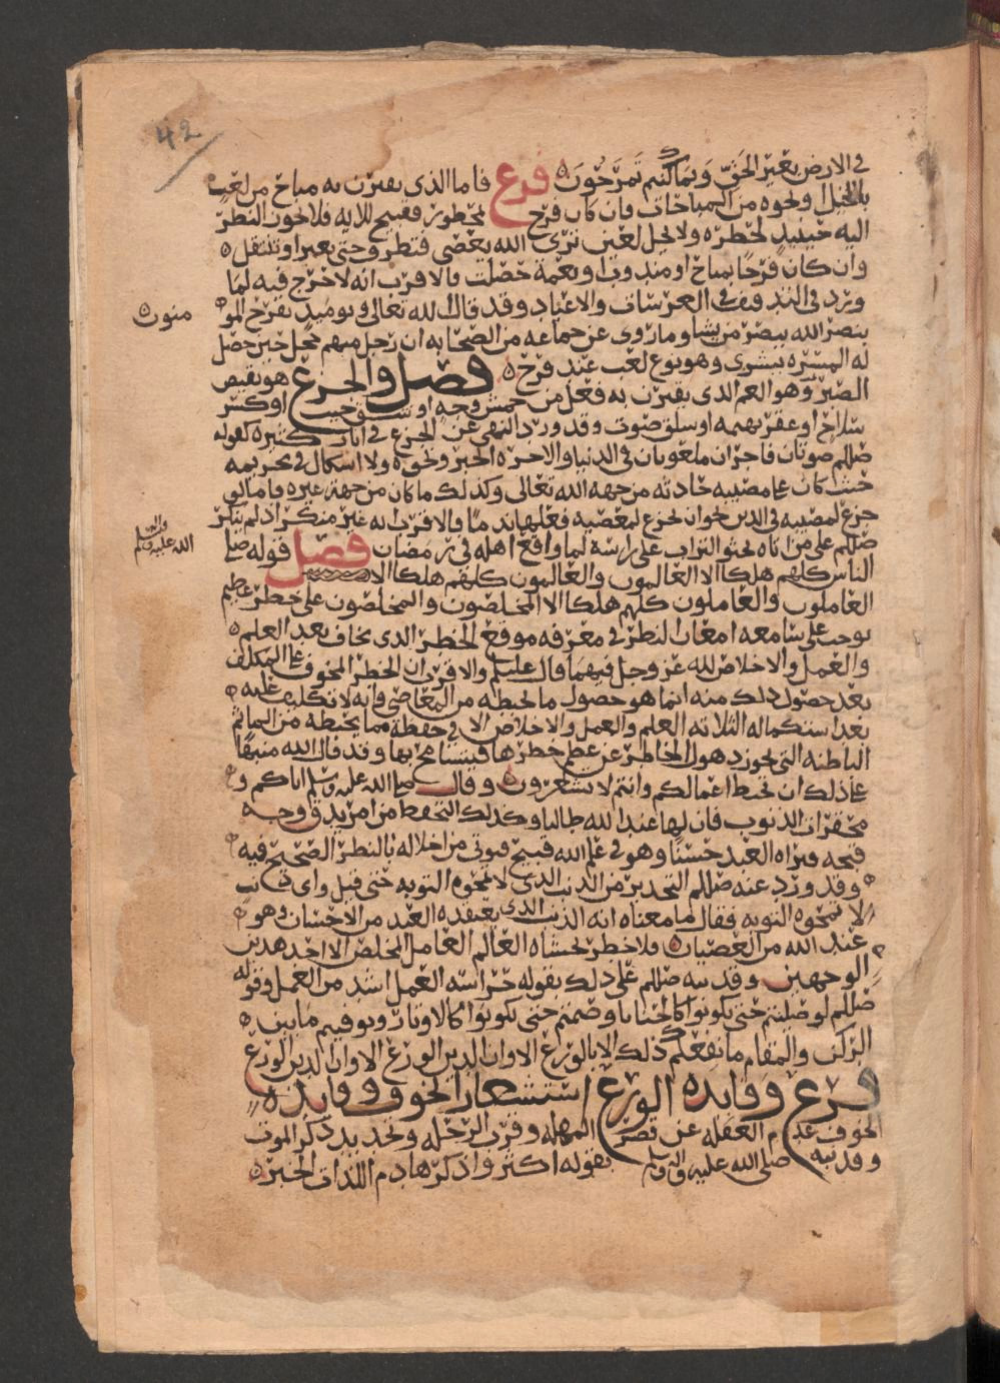 42
في الارض بغير الحق وبما كنتم تمرحون فرع فاما الذي يقترن به مباح من لعب
بالخيل او نحوه من المباحات فان كان فرح بمحظور فقبيح للايه فلا يجوز النظر
اليه حينيد لحظره ولا يحل لعين ترى الله يعصى فتطرف حتى يغير او تنتقل
وان كان فرحا بمباح او مندوب او نعمة حصلت فالاقرب انه لا حرج فيه لما
ورد في الندفيف في العرسات والاعياد وقد قال الله تعالى ويوميد يفرح المو
منون
بنصر الله ينصر من يشا وما روي عن جماعه من الصحابه ان رجل منهم حجل حين حصل
له المسره ببشرى وهو نوع لعب عند فرح فصل والجزع هو نقيض
الصبر وهو الغم الذي يقترن به فعل من خمش وجه او شق جيب او كسر
سلاح او عقر بهيمه او سلق صوت وقد ورد النهي عن الجزع في اثار كثيره كقوله
صللم صوتان فاجران ملعونان في الدنيا والاخره الخبر ونحوه ولا اشكال في تحريمه
حيث كان على مصيبه حادثه من جهه الله تعالى وكذلك ما كان من جهة غيره فاما لو
جزع لمصيبه في الدين نحو ان يجزع لمعصيه فعلها ندما فالاقرب انه غير منكر اذ لم ينكر
صللم على من اتاه يحثو التراب على راسه لما واقع اهله في رمضان فصل قوله صلى
الله عليه واله وسلم
الناس كلهم هلكا الا العالمون والعالمون كلهم هلكا الا
العاملون والعاملون كلهم هلكا الا المخلصون والمخلصون على خطر عظيم
يوجب على سامعه امعان النظر في معرفه موقع الخطر الذي يخاف بعد العلم
والعمل والاخلاص لله عز وجل فيهما قال عليلم والاقرب ان الخطر المخوف على المكلف
بعد حصول ذلك منه انما هو حصول ما يحبطه من المعاصي وانه لا تكليف عليه
بعد استكماله الثلاثه العلم والعمل والاخلاص الا في حفظه مما يحبطه من الماثم
الباطنه التي يجوز ذهول الخاطر عن عظم خطرها فيتسامح بها وقد قال الله منبها
على ذلك ان تحبط اعمالكم وانتم لا تشعرون وقال صلى الله عليه وسلم اياكم و
محقرات الذنوب فان لها عند الله طالبا وكذلك التحفظ من امر يدق وجه
قبحه فيراه العبد حسنا وهو في علم الله قبيح فيوتى من اخلاله بالنظر الصحيح فيه
وقد ورد عنه صللم التحذير من الذنب الذي لا تمحوه التوبه حتى قيل واي ذنب
لا تمحوه التوبه فقال ما معناه انه الذنب الذي يعتقده العبد من الاحسان وهو
عند الله من العصيان فلا خطر يخشاه العالم العامل المخلص الا احد هذين
الوجهين وقد نبه صللم على ذلك بقوله حراسه العمل اشد من العمل وقوله
صللم لو صليتم حتى تكونوا كالحنايا وصمتم حتى تكونوا كالاوتار وتوفيتم ما بين
الركن والمقام ما نفعكم ذلك الا بالورع الا وان الدين الورع الا وان الدين الورع
فرع وفايده الورع استشعار الخوف وفايده
الخوف عدم الغفله عن قصر المهله وقرب الرحله وتجديد ذكر الموت
وقد نبه صلى الله عليه واله وسلم بقوله اكثروا ذكر هادم اللذات الخبر